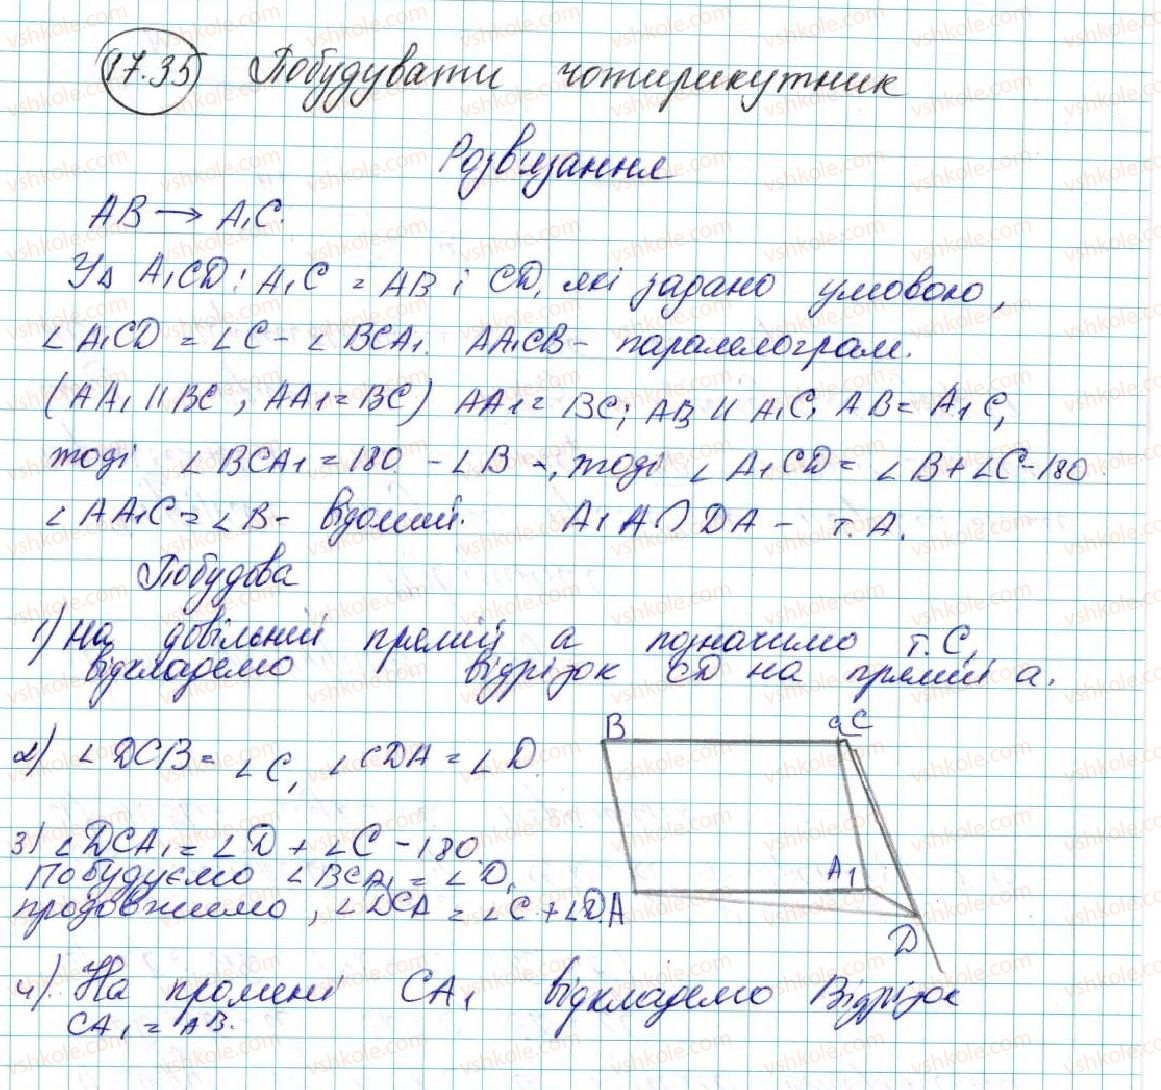 17.35 Побудувати чотирикутник
Розв'язання
AB → A₁C.
У Δ A₁CD: A₁C = AB і CD, які задано умовою,
∠A₁CD = ∠C - ∠BCA₁. AA₁CB - паралелограм.
(AA₁ || BC, AA₁ = BC) AA₁ = BC; AB || A₁C; AB = A₁C,
тоді ∠BCA₁ = 180 - ∠B -, тоді ∠A₁CD = ∠B + ∠C - 180.
∠AA₁C = ∠B - відомий. A₁A ∩ DA - т. A.
Побудова
1) На довільній прямій a позначимо т. C,
відкладемо відрізок CD на прямій a.
2) ∠DCB = ∠C, ∠CDA = ∠D.
3) ∠DCA₁ = ∠D + ∠C - 180.
Побудуємо ∠BCA₁ = ∠D,
продовжимо, ∠DCA = ∠C + ∠D
4). На промені CA₁ відкладемо Відрізок
CA₁ = AB.
B
a C
A₁
A
D